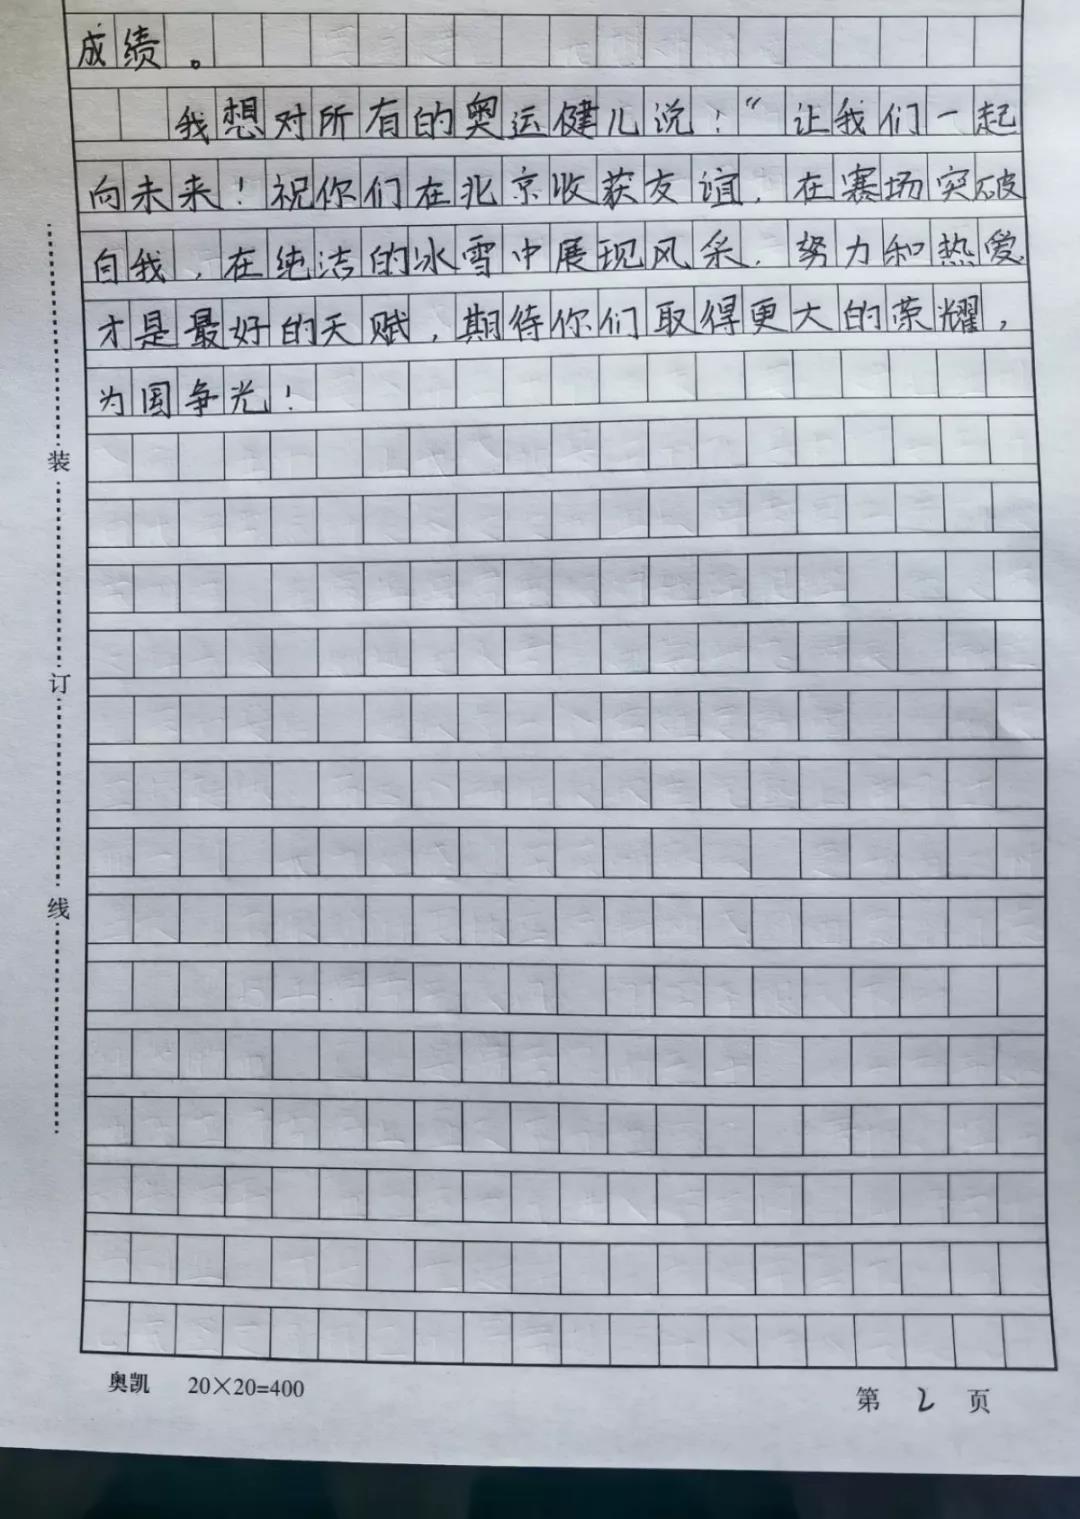 成绩。
我想对所有的奥运健儿说：“让我们一起
向未来！祝你们在北京收获友谊，在赛场突破
自我，在纯洁的冰雪中展现风采，努力和热爱
才是最好的天赋，期待你们取得更大的荣耀，
为国争光！
装
订
线
奥凯 20×20=400
第 2 页